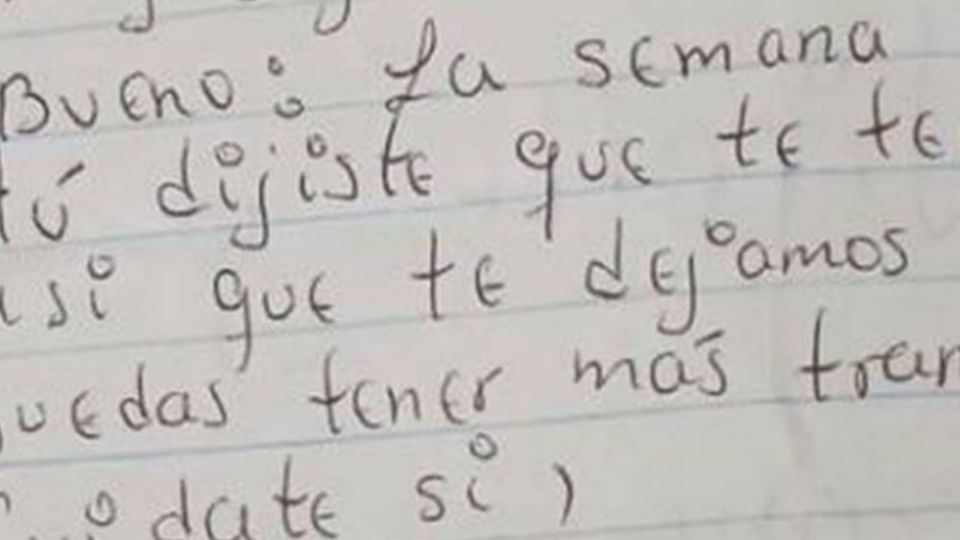 Bueno: La semana
tú dijiste que te te
asi que te dejamos
puedas tener más tran
date si )